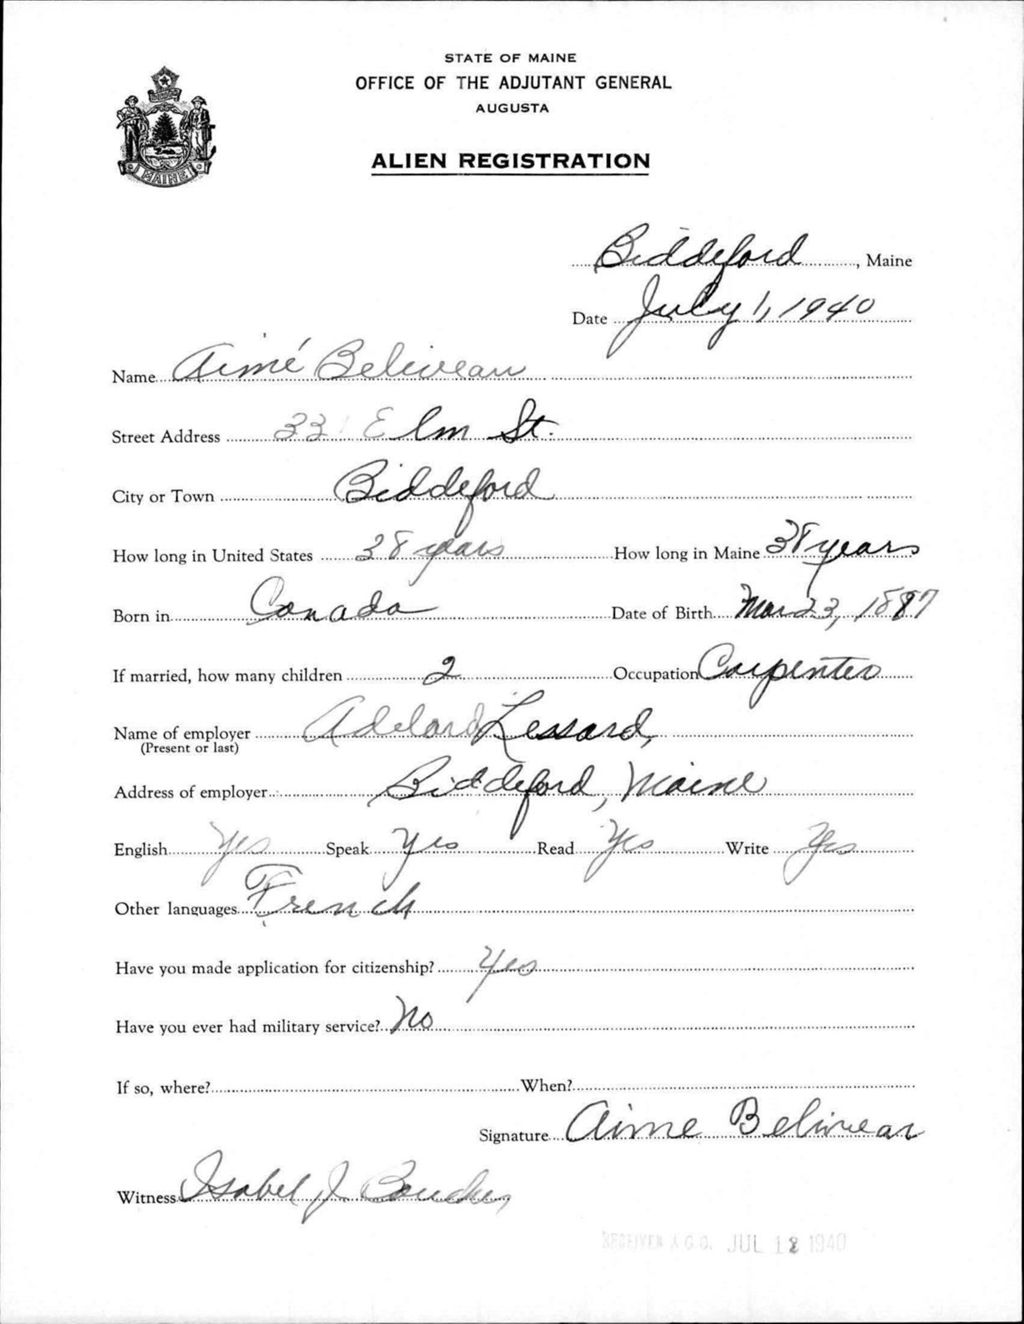 STATE OF MAINE
OFFICE OF THE ADJUTANT GENERAL
AUGUSTA
ALIEN REGISTRATION
MAINE
Biddeford, Maine
Date July 1, 1940
Name Aimé Beliveau
Street Address 33 Elm St.
City or Town Biddeford
How long in United States 38 years How long in Maine 38 years
Born in Canada Date of Birth Mar 23, 1887
If married, how many children 2 Occupation Carpenter
Name of employer Adelard Lessard,
(Present or last)
Address of employer Biddeford, Maine
English Yes Speak Yes Read Yes Write Yes
Other languages French
Have you made application for citizenship? Yes
Have you ever had military service? No
If so, where? When?
Signature Aime Beliveau
Witness Isabel J
RECEIVED A.G.O. JUL 12 1940